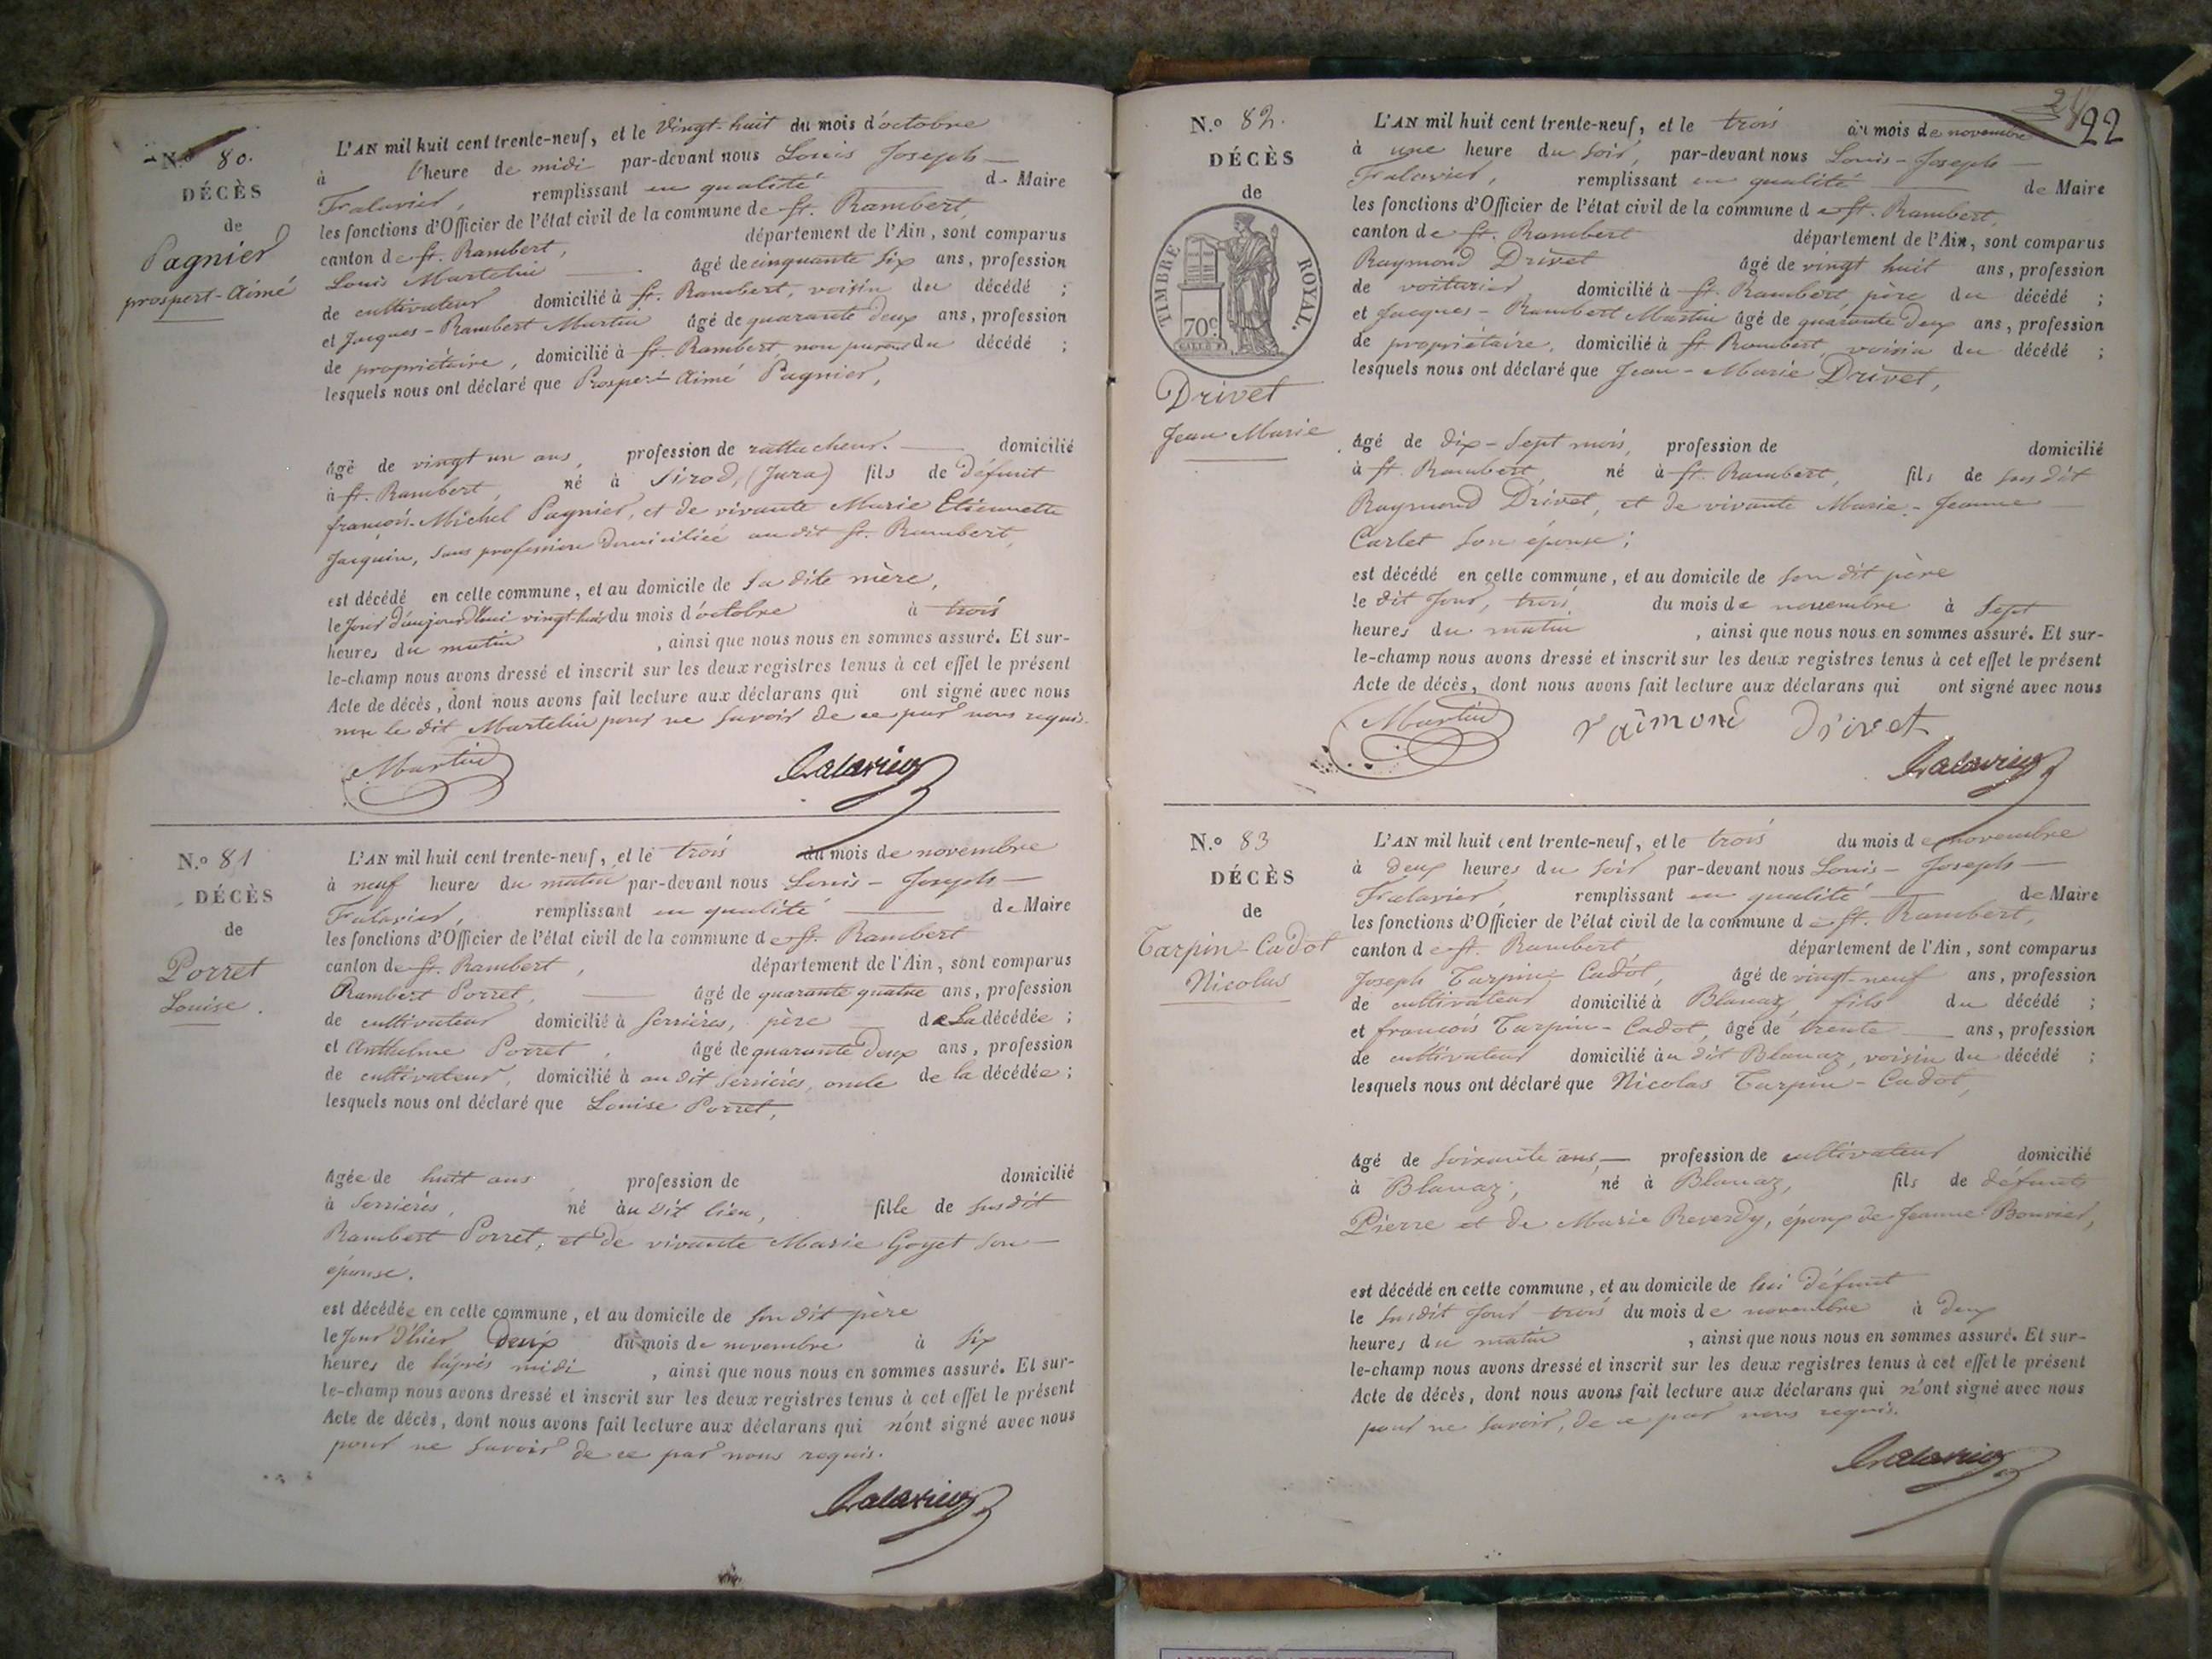 N.o 80.
DÉCÈS
de
Pagnier
prospert-Aimé
L'AN mil huit cent trente-neuf, et le Vingt-huit du mois d'octobre
à l'heure de midi par-devant nous Louis Joseph
remplissant en qualité de Maire
les fonctions d'Officier de l'état civil de la commune de St. Rambert,
canton de St. Rambert, département de l'Ain, sont comparus
Louis Martelin âgé de cinquante six ans, profession
de cultivateur domicilié à St. Rambert, voisin du décédé ;
et Jacques-Rambert Martin âgé de quarante deux ans, profession
de propriétaire, domicilié à St. Rambert, non parent du décédé ;
lesquels nous ont déclaré que Prosper-Aimé Pagnier,
âgé de vingt un ans, profession de rattacheur. domicilié
à St. Rambert, né à Sirod, (Jura) fils de défunt
françois-Michel Pagnier, et de vivante Marie Etiennette
Jacquin, sans profession domiciliée au dit St. Rambert,
est décédé en cette commune, et au domicile de sa dite mère,
le jour d'aujourd'hui vingt-huit du mois d'octobre à trois
heures du matin, ainsi que nous nous en sommes assuré. Et sur-
le-champ nous avons dressé et inscrit sur les deux registres tenus à cet effet le présent
Acte de décès, dont nous avons fait lecture aux déclarans qui ont signé avec nous
non le dit Martelin pour ne savoir de ce par nous requis.
Martin
N.o 81
DÉCÈS
de
Porret
Louise.
L'AN mil huit cent trente-neuf, et le trois du mois de novembre
à neuf heures du matin par-devant nous Louis-Joseph
remplissant en qualité de Maire
les fonctions d'Officier de l'état civil de la commune de St. Rambert
canton de St. Rambert, département de l'Ain, sont comparus
Rambert Porret, âgé de quarante quatre ans, profession
de cultivateur domicilié à Serrières, père de La décédée ;
et Anthelme Porret, âgé de quarante deux ans, profession
de cultivateur, domicilié à au dit Serrières, oncle de la décédée ;
lesquels nous ont déclaré que Louise Porret,
âgée de huit ans, profession de domicilié
à Serrières, né au dit lieu, fille de susdit
Rambert Porret, et de vivante Marie Goyet son
épouse.
est décédée en cette commune, et au domicile de son dit père
le jour d'hier deux du mois de novembre à six
heures de l'après midi, ainsi que nous nous en sommes assuré. Et sur-
le-champ nous avons dressé et inscrit sur les deux registres tenus à cet effet le présent
Acte de décès, dont nous avons fait lecture aux déclarans qui n'ont signé avec nous
pour ne savoir de ce par nous requis.
22
N.o 82.
DÉCÈS
de
TIMBRE ROYAL.
70c
Drivet
Jean Marie
L'AN mil huit cent trente-neuf, et le trois du mois de novembre
à une heure du soir, par-devant nous Louis-Joseph
remplissant en qualité de Maire
les fonctions d'Officier de l'état civil de la commune de St. Rambert,
canton de St. Rambert département de l'Ain, sont comparus
Raymond Drivet âgé de vingt huit ans, profession
de voiturier domicilié à St. Rambert, père du décédé ;
et Jacques-Rambert Martin âgé de quarante deux ans, profession
de propriétaire, domicilié à St. Rambert voisin du décédé ;
lesquels nous ont déclaré que Jean-Marie Drivet,
âgé de dix-sept mois, profession de domicilié
à St. Rambert, né à St. Rambert, fils de susdit
Raymond Drivet, et de vivante Marie-Jeanne
Carlet son épouse ;
est décédé en cette commune, et au domicile de son dit père
le dit jour, trois du mois de novembre à Sept
heures du matin, ainsi que nous nous en sommes assuré. Et sur-
le-champ nous avons dressé et inscrit sur les deux registres tenus à cet effet le présent
Acte de décès, dont nous avons fait lecture aux déclarans qui ont signé avec nous
Martin raimond drivet
N.o 83
DÉCÈS
de
Tarpin-Cadot
Nicolas
L'AN mil huit cent trente-neuf, et le trois du mois de novembre
à deux heures du soir par-devant nous Louis-Joseph
remplissant en qualité de Maire
les fonctions d'Officier de l'état civil de la commune de St. Rambert,
canton de St. Rambert département de l'Ain, sont comparus
Joseph Tarpin-Cadot, âgé de vingt-neuf ans, profession
de cultivateur domicilié à Blanaz, fils du décédé ;
et françois Tarpin-Cadot, âgé de trente ans, profession
de cultivateur domicilié au dit Blanaz, voisin du décédé ;
lesquels nous ont déclaré que Nicolas Tarpin-Cadot,
âgé de soixante ans, profession de cultivateur domicilié
à Blanaz, né à Blanaz, fils de défunts
Pierre et de Marie Reverdy, époux de Jeanne Bouvier,
est décédé en cette commune, et au domicile de lui défunt
le susdit jour trois du mois de novembre à deux
heures du matin, ainsi que nous nous en sommes assuré. Et sur-
le-champ nous avons dressé et inscrit sur les deux registres tenus à cet effet le présent
Acte de décès, dont nous avons fait lecture aux déclarans qui n'ont signé avec nous
pour ne savoir, de ce par nous requis.